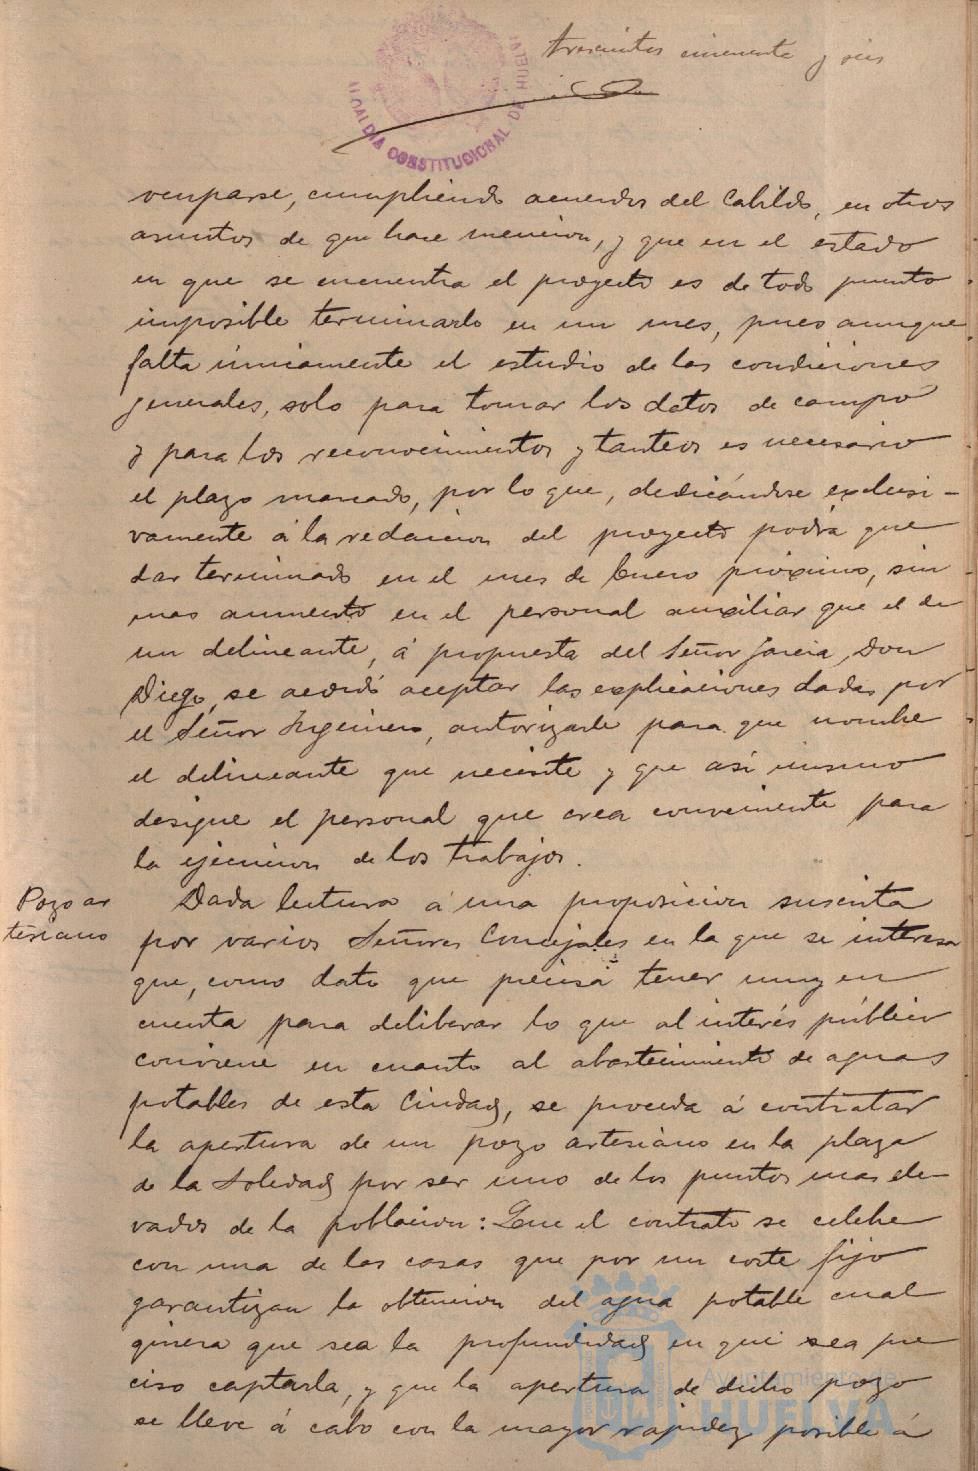 trescientos cincuenta y seis
ALCALDIA CONSTITUCIONAL DE HUELVA
ocuparse, cumpliendo acuerdos del Cabildo, en otros
asuntos de que hace mencion, y que en el estado
en que se encuentra el proyecto es de todo punto
imposible terminarlo en un mes, pues aunque
falta únicamente el estudio de las condiciones
generales, solo para tomar los datos de campo
y para los reconocimientos y tanteos es necesario
el plazo marcado, por lo que, dedicándose exclusi-
vamente á la redaccion del proyecto podrá que
dar terminado en el mes de Enero próximo, sin
mas aumento en el personal auxiliar que el de
un delineante, á propuesta del Señor Garcia, Don
Diego, se acordó aceptar las explicaciones dadas por
el Señor Ingeniero, autorizarle para que nombre
el delineante que necesite y que asi mismo
designe el personal que crea conveniente para
la ejecucion de los trabajos.
Pozo ar
tesiano
Dada lectura á una proposicion suscrita
por varios Señores Concejales en la que se interesa
que, como dato que precisa tener muy en
cuenta para deliberar lo que al interés público
conviene en cuanto al abastecimiento de aguas
potables de esta Ciudad, se proceda á contratar
la apertura de un pozo artesiano en la plaza
de la Soledad por ser uno de los puntos mas ele-
vados de la poblacion: Que el contrato se celebre
con una de las casas que por un coste fijo
garantizan la obtencion del agua potable cual
quiera que sea la profundidad en que sea pre
ciso captarla, y que la apertura de dicho pozo
se lleve á cabo con la mayor rapidez posible á
Ayuntamiento de
HUELVA